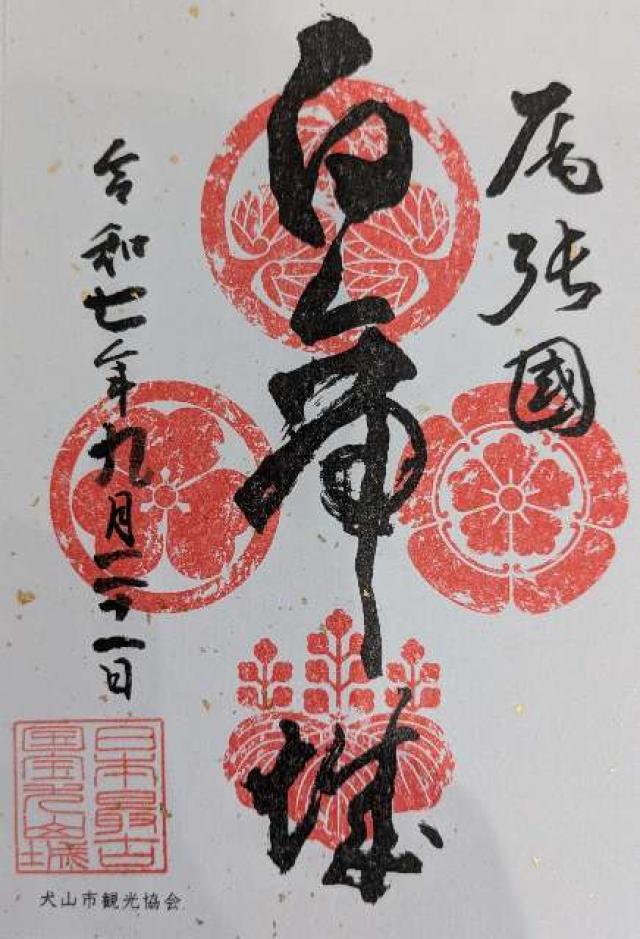 尾張國
白帝城
令和七年九月二十一日
日本最古
国宝犬山城
犬山市観光協会